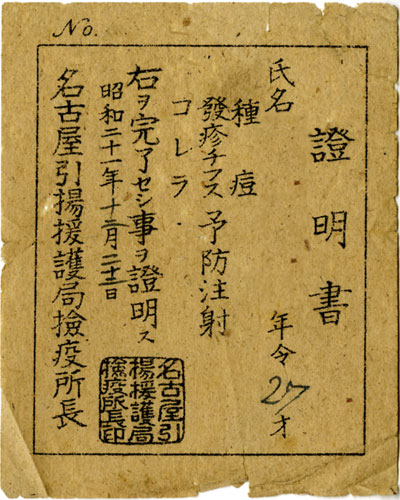 No.
證明書
氏名 年令 27才
種痘
發疹チフス予防注射
コレラ
右ヲ完了セシ事ヲ證明ス
昭和二十一年十二月二十二日
名古屋引揚援護局撿疫所長
名古屋引
揚援護局
撿疫所長印